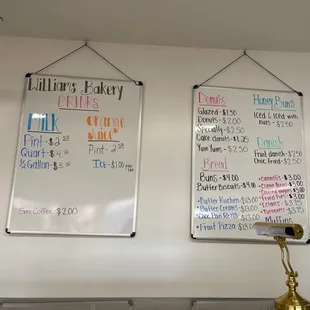 Williams Bakery
DRINKS
Milk
Pint - $2
Quart - $4
½ Gallon - $5
Orange
Juice
Pint - 2
ICE - $1.00
Sm Coffee - $2.00
Donuts
Glazed - $1.50
Donuts - $2.00
Specialty - $2.50
Cake donuts - $1.25
Yum Yums - $2.50
Bread
Buns - $4.00
Butter Biscuits - $4.00
Butter Kuchen - $13.00
Butter Creams - $13.00
Choc Pan Rolls - $13.00
Fruit Pizza - $13.00
Honey Buns
Iced & Iced with
nuts - $2.50
Danish
Fruit danish - $2.50
Choc fried - $2.50
Cannolis - $3.00
$3.00
$3.00
$3.00
Eclairs - $3.75
$3.75
Muffins